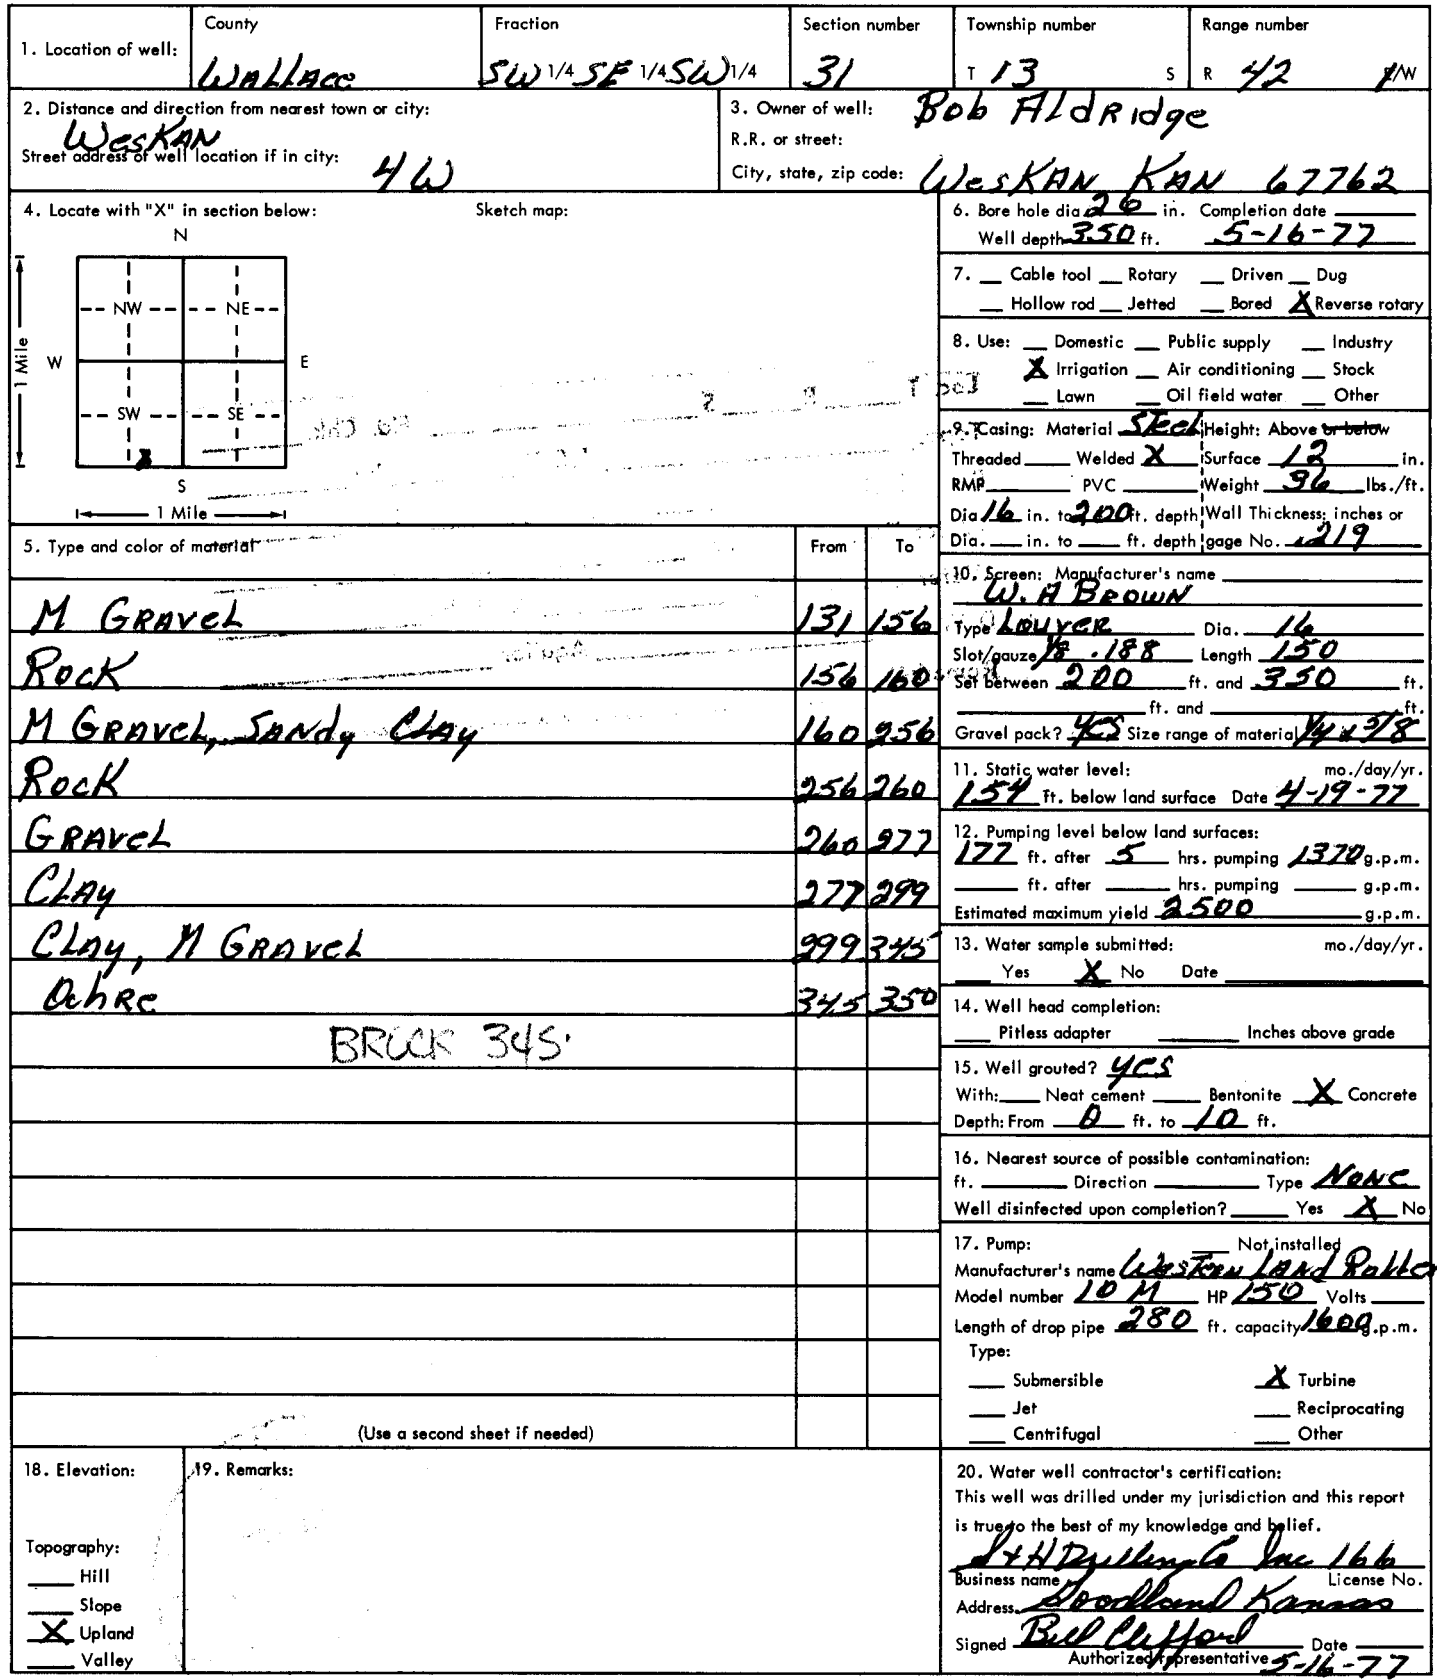 1. Location of well: County Wallace Fraction SW 1/4 SE 1/4 SW 1/4 Section number 31 Township number T 13 S Range number R 42 E/W
2. Distance and direction from nearest town or city:
WesKAN
Street address of well location if in city:
4W
3. Owner of well: Bob Aldridge
R.R. or street:
City, state, zip code: WesKAN, KAN 67762
4. Locate with "X" in section below: Sketch map:
N
NW NE
W E
1 Mile
SW SE
X
S
1 Mile
5. Type and color of material From To
M Gravel 131 156
Rock 156 160
M Gravel, Sandy Clay 160 256
Rock 256 260
Gravel 260 277
Clay 277 299
Clay, M Gravel 299 345
Ochre 345 350
BRUCK 345'
(Use a second sheet if needed)
6. Bore hole dia 26 in. Completion date
Well depth 350 ft. 5-16-77
7. Cable tool Rotary Driven Dug
Hollow rod Jetted Bored X Reverse rotary
8. Use: Domestic Public supply Industry
X Irrigation Air conditioning Stock
Lawn Oil field water Other
9. Casing: Material Steel Height: Above or below
Threaded Welded X Surface 12 in.
RMP PVC Weight 36 lbs./ft.
Dia 16 in. to 200 ft. depth Wall Thickness: inches or
Dia. in. to ft. depth gage No. .219
10. Screen: Manufacturer's name
W. A Brown
Type Louver Dia. 16
Slot/gauze 1/8 .188 Length 150
Set between 200 ft. and 350 ft.
ft. and ft.
Gravel pack? yes Size range of material 1/4 x 3/8
11. Static water level: mo./day/yr.
154 ft. below land surface Date 4-19-77
12. Pumping level below land surfaces:
177 ft. after 5 hrs. pumping 1370 g.p.m.
ft. after hrs. pumping g.p.m.
Estimated maximum yield 2500 g.p.m.
13. Water sample submitted: mo./day/yr.
Yes X No Date
14. Well head completion:
Pitless adapter Inches above grade
15. Well grouted? yes
With: Neat cement Bentonite X Concrete
Depth: From 0 ft. to 10 ft.
16. Nearest source of possible contamination:
ft. Direction Type None
Well disinfected upon completion? Yes X No
17. Pump: Not installed
Manufacturer's name Western Land Roller
Model number 10 M HP 150 Volts
Length of drop pipe 280 ft. capacity 1600 g.p.m.
Type:
Submersible X Turbine
Jet Reciprocating
Centrifugal Other
18. Elevation:
Topography:
Hill
Slope
X Upland
Valley
19. Remarks:
20. Water well contractor's certification:
This well was drilled under my jurisdiction and this report
is true to the best of my knowledge and belief.
S+H Drilling Co Inc 166
Business name License No.
Address Goodland Kansas
Signed Bill Clifford Date
Authorized representative 5-16-77